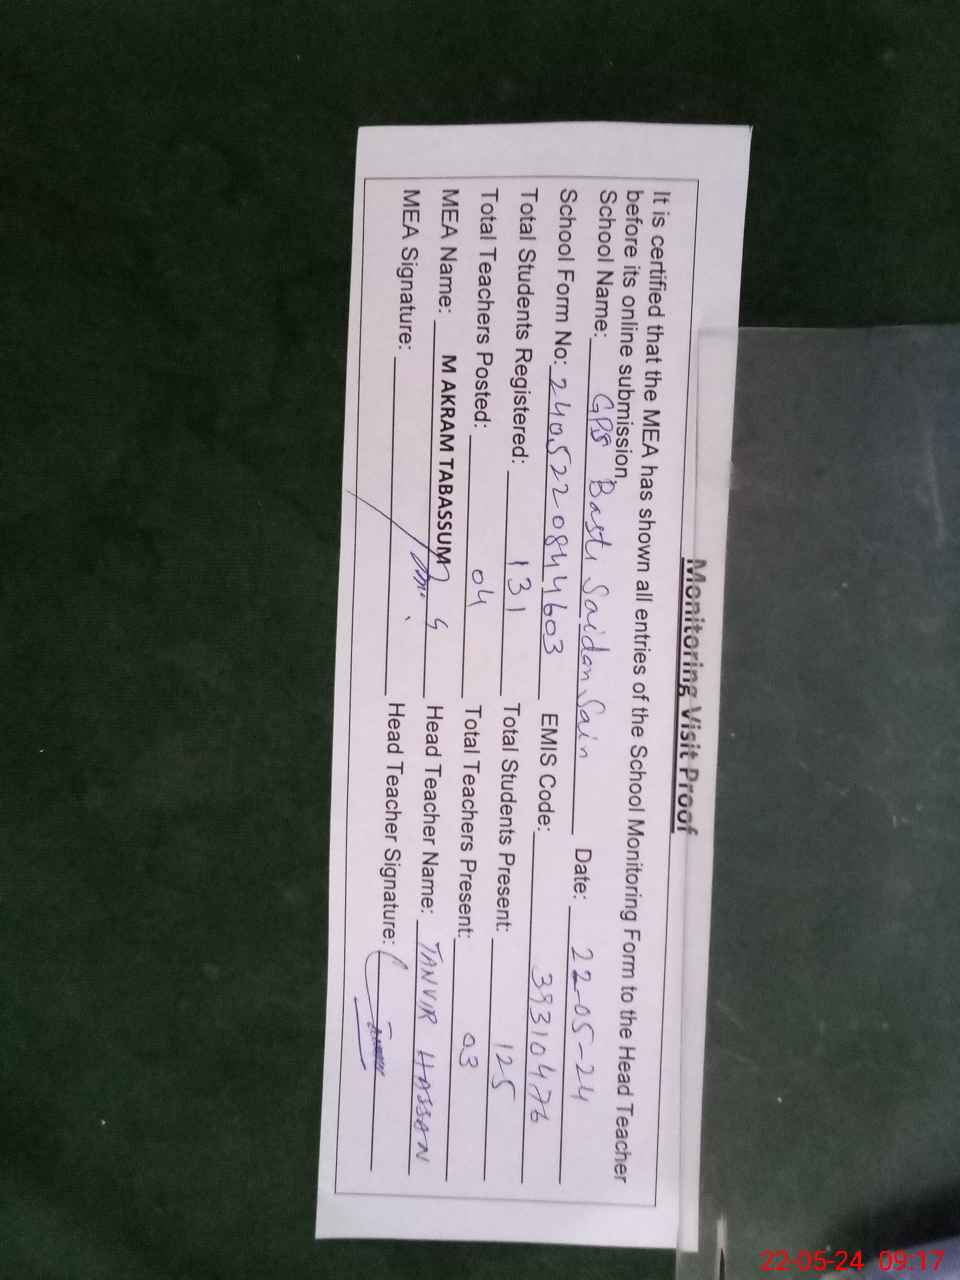 Monitoring Visit Proof
It is certified that the MEA has shown all entries of the School Monitoring Form to the Head Teacher
before its online submission.
School Name: GPS Basti Saidan Sain Date: 22-05-24
School Form No: 2405220844603 EMIS Code: 39310476
Total Students Registered: 131 Total Students Present: 125
Total Teachers Posted: 04 Total Teachers Present: 03
MEA Name: M AKRAM TABASSUM Head Teacher Name: TANVIR HASSAN
MEA Signature: Head Teacher Signature:
22-05-24 09:17